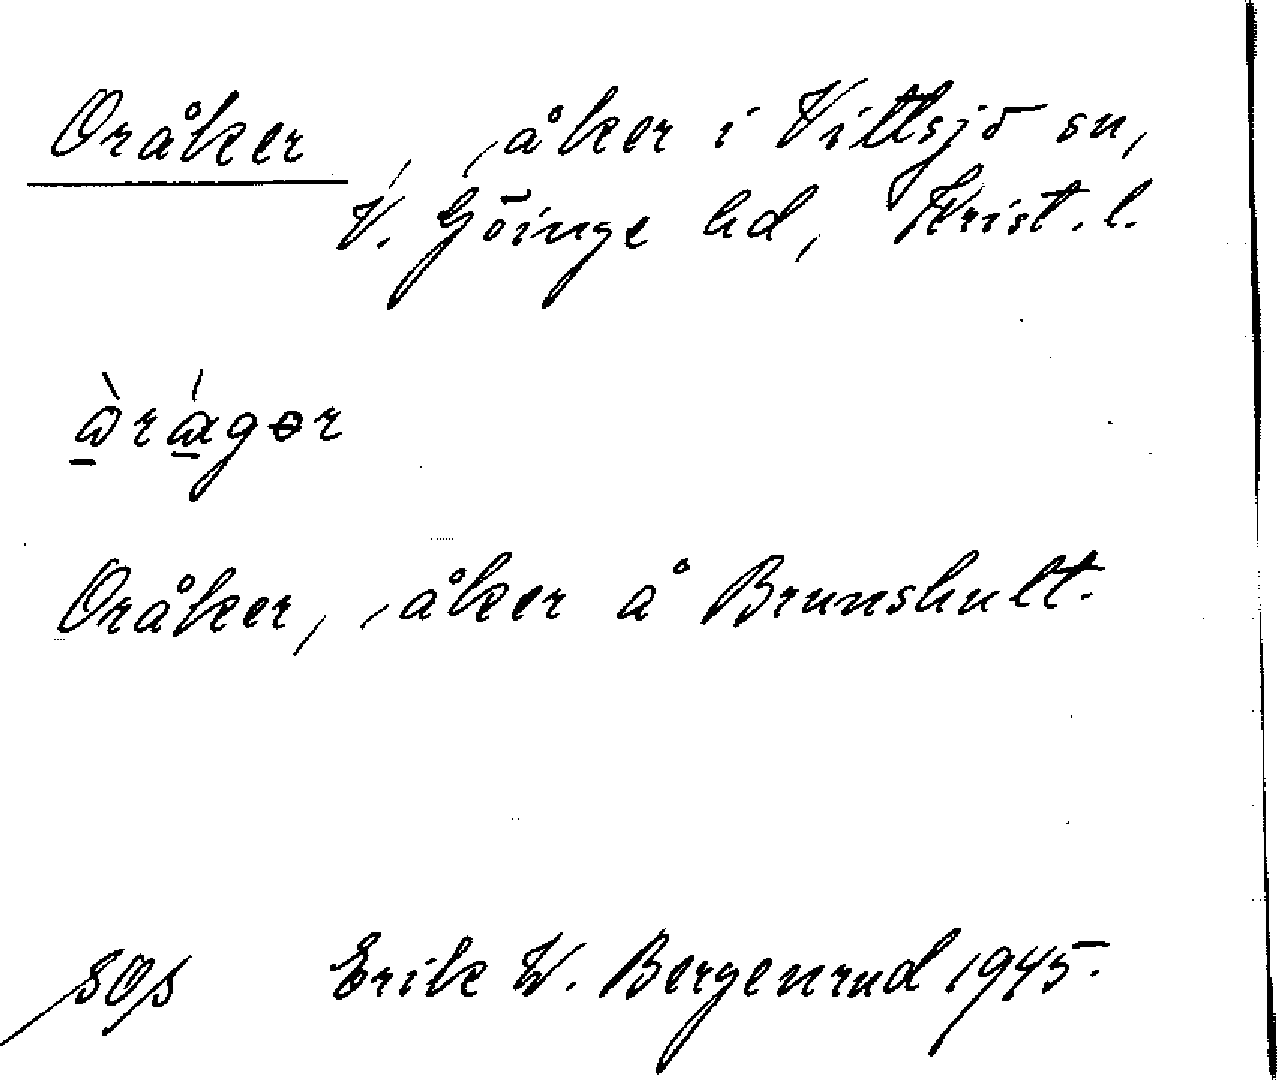 Oråker, åker i Vittsjö sn,
V. Göinge hd, Krist. l.
Oråker, åker å Brunshult.
Erik W. Bergenrud 1945.